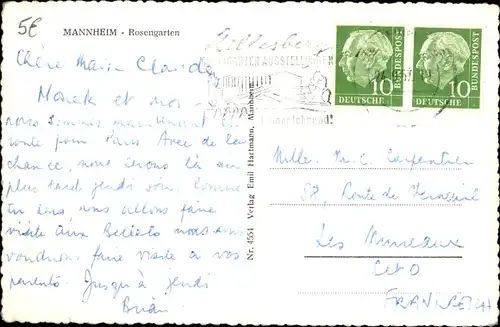 5€
MANNHEIM - Rosengarten
Chère Marie-Claude
Manek et moi
nous sommes maintenant
route pour Paris Avec de la
chance, nous serons là au
plus tard jeudi soir. Comme
tu sais, nous allons faire
visite aux
voudrions faire visite à vos
parents. Jusqu'à jeudi
Brian
Nr. 4554 Verlag Emil Hartmann, Mannheim
10 DEUTSCHE BUNDESPOST
10 DEUTSCHE BUNDESPOST
Mlle. M. C. Carpentier
58, Route de
Les Mureaux
FRANKREICH